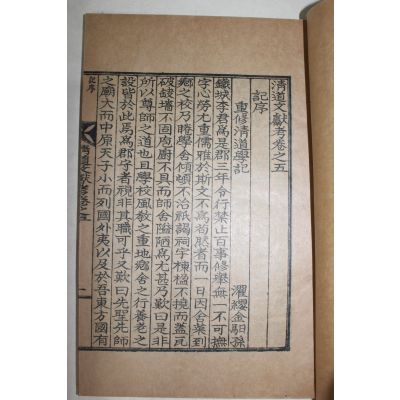 清道文獻考卷之五
記序
重修清道學記
濯纓金馹孫
鐵城李君爲是郡三年令行禁止百事修擧無一不可撫
字心勞尤重儒雅於斯文不爲苟然者而一日因舍菜到
鄕校乃睠學舍傾頓不治祇謁祠宇棟楹不撓而蓋瓦
破缺墻不固庖廚不具而師舍隘陋爲尤甚乃歎曰是非
所以尊師之道也且學校風敎之重地鄕舍之行養老之
設皆於此焉爲郡守者視非其職可乎又歎曰先聖先師
之廟大而中原天子小而列國外夷以及於吾東方國有
記序
淸道文獻考卷之五
一